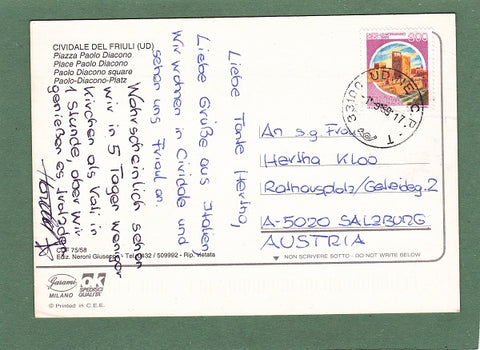 CIVIDALE DEL FRIULI (UD)
Piazza Paolo Diacono
Place Paolo Diacono
Paolo Diacono square
Paolo-Diacono-Platz
Liebe Tante Hertha,
Liebe Grüße aus Italien
Wir wohnen in Cividale und
sehen uns Friaul an.
Wahrscheinlich sehen
wir in 5 Tagen weniger
Kirchen als Vali in
1 Stunde, aber wir
genießen es trotzdem
An s.g. Frau
Hertha Kloo
Rathausplatz/
A-5020 SALZBURG
AUSTRIA
300
33100 UDINE C.P.
CDF 75/58
Ediz. Neroni Giuseppe - Tel. 0432 / 509992 - Rip. vietata
▼ NON SCRIVERE SOTTO - DO NOT WRITE BELOW
Garami
MILANO
SPEDIGICI
QUALITÀ
© Printed in C.E.E.